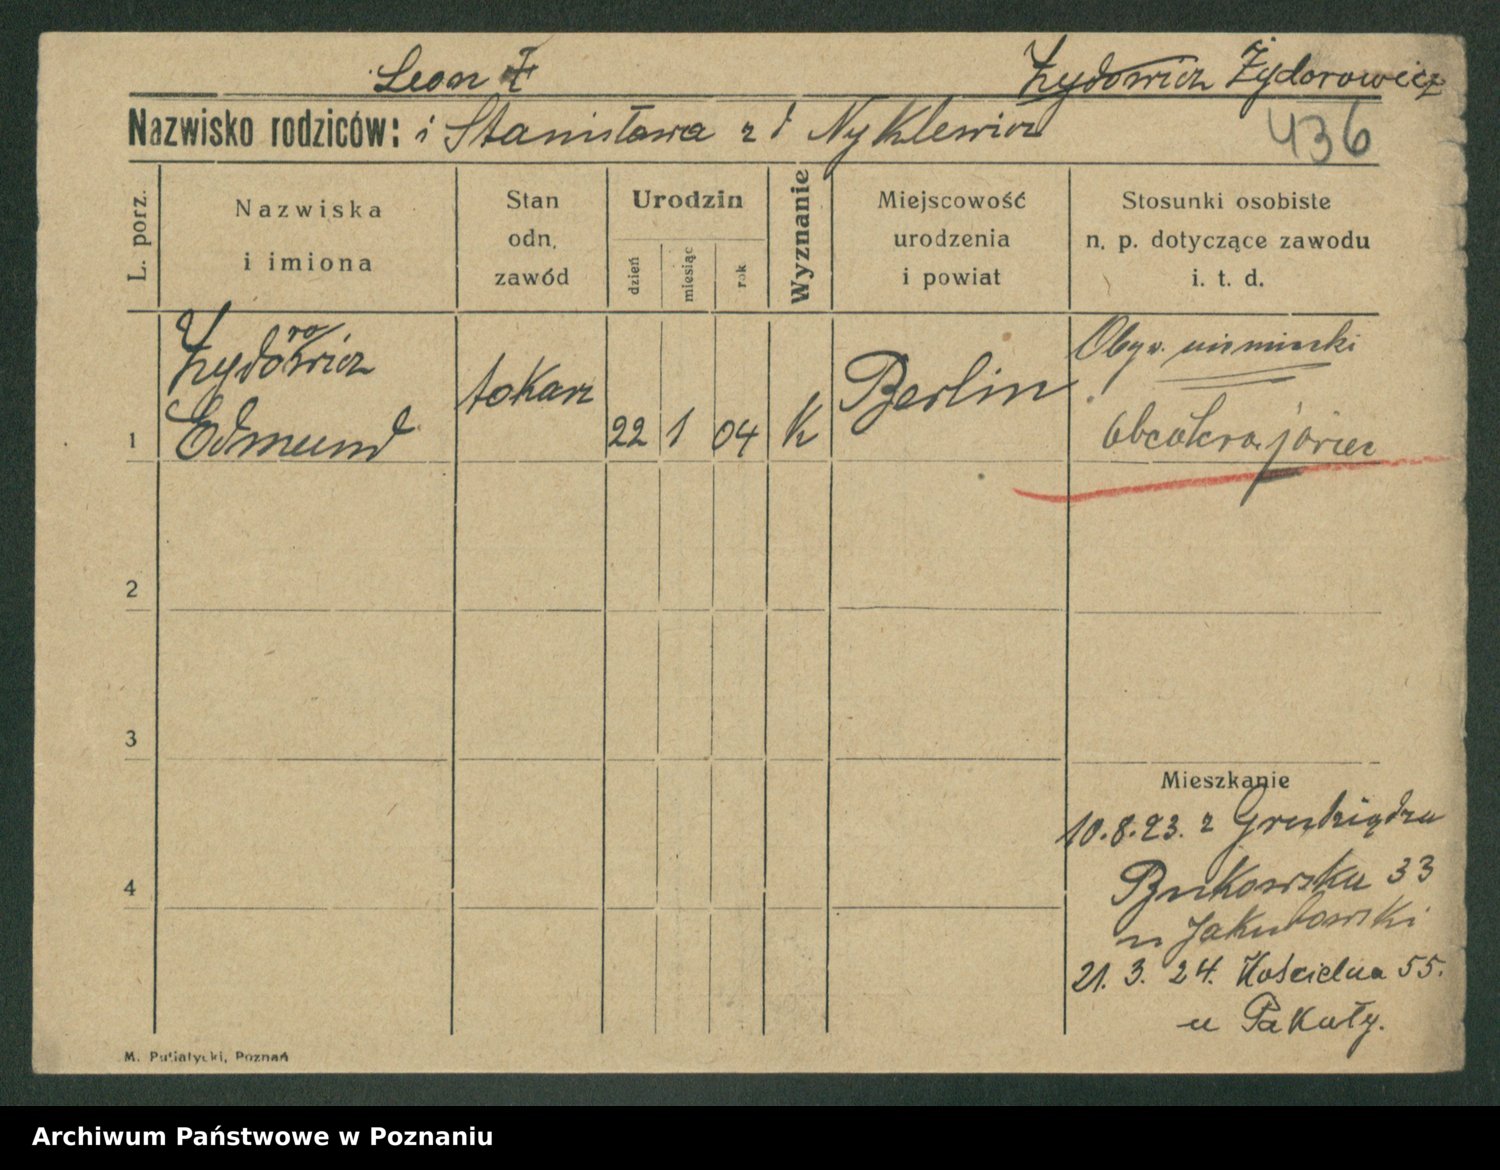 Leon Ż Żydowicz Żydorowicz
Nazwisko rodziców: i Stanisława z d Nyklewicz
436
L. porz.
Nazwiska
i imiona
Stan
odn.
zawód
Urodzin
dzień
miesiąc
rok
Wyznanie
Miejscowość
urodzenia
i powiat
Stosunki osobiste
n. p. dotyczące zawodu
i. t. d.
ro
Żydowicz
Edmund
tokarz
1
22 1 04
K
Berlin
Obyw. niemiecki
obcokrajowiec
2
3
4
Mieszkanie
10.8.23. z Grudziądza
Bukowska 33
u Jakubowski
21. 3. 24. Kościelna 55.
u Pakuły.
M. Putiatycki, Poznań
Archiwum Państwowe w Poznaniu